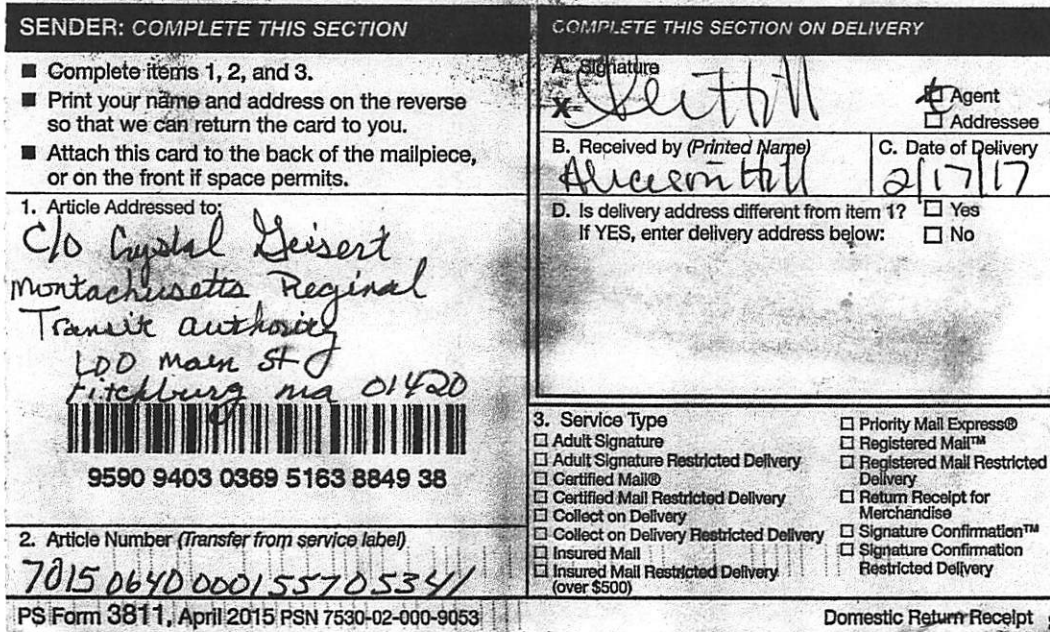 SENDER: COMPLETE THIS SECTION
■ Complete items 1, 2, and 3.
■ Print your name and address on the reverse
so that we can return the card to you.
■ Attach this card to the back of the mailpiece,
or on the front if space permits.
1. Article Addressed to:
C/O Crystal Geisert
Montachusetts Reginal
Transit authority
100 Main St
Fitchburg ma 01420
9590 9403 0369 5163 8849 38
2. Article Number (Transfer from service label)
7015 0640 0001 5570 5341
PS Form 3811, April 2015 PSN 7530-02-000-9053
COMPLETE THIS SECTION ON DELIVERY
A. Signature
X Hill
☐ Agent
☐ Addressee
B. Received by (Printed Name)
Hill
C. Date of Delivery
2/17/17
D. Is delivery address different from item 1? ☐ Yes
If YES, enter delivery address below: ☐ No
3. Service Type
☐ Adult Signature
☐ Adult Signature Restricted Delivery
☐ Certified Mail®
☐ Certified Mail Restricted Delivery
☐ Collect on Delivery
☐ Collect on Delivery Restricted Delivery
☐ Insured Mail
☐ Insured Mail Restricted Delivery
(over $500)
☐ Priority Mail Express®
☐ Registered Mail™
☐ Registered Mail Restricted
Delivery
☐ Return Receipt for
Merchandise
☐ Signature Confirmation™
☐ Signature Confirmation
Restricted Delivery
Domestic Return Receipt